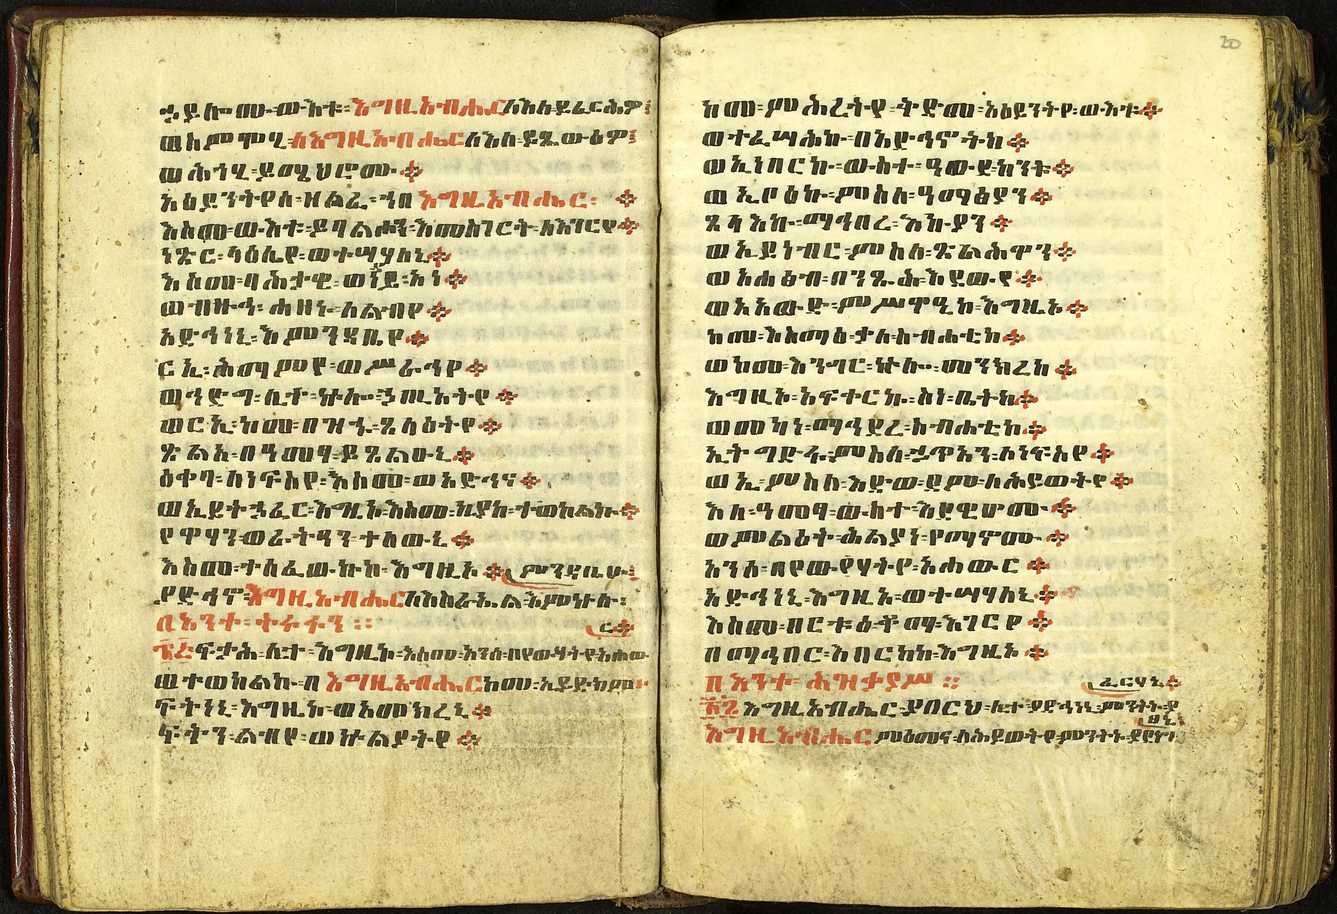 ኃይሎሙ፡ውእቱ፡እግዚአብሔር፡ለእለ፡ይፈርሕዎ፤
ወስምሞሂ፡ለእግዚአብሔር፡ለእለ፡ይጼውዕዎ፤
ወሕጎሂ፡ይሜህሮሙ።
አዕይንትየሰ፡ዘልፈ፡ኀበ፡እግዚአብሔር፡።
እስመ፡ውእቱ፡ይባልሖን፡እመስገርት፡ለእገርየ።
ነጽር፡ላዕሌየ፡ወተሣሃለኒ።
እስመ፡ባሕታዊ፡ወነዳይ፡አነ።
ወብዙኅ፡ሐዘነ፡ልብየ።
አድኅነኒ፡እምንዳቤየ።
ርኢ፡ሕማምየ፡ወሥራኅየ።
ወኅድግ፡ሊተ፡ኵሎ፡ኃጢአትየ።
ወርኢ፡ከመ፡በዝኁ፡ጸላዕትየ።
ጽልአ፡በዓመፃ፡ይጸልዑኒ።
ዕቀባ፡ለነፍስየ፡እስመ፡ወአድኅና።
ወኢይትኃፈር፡እግዚኦ፡እስመ፡ኪያከ፡ተወከልኩ።
የዋሃን፡ወራትዓን፡ተለዉኒ።
እስመ፡ተሰፈውኩከ፡እግዚኦ። ምንዳቤሁ፤
ያድኅኖ፡እግዚአብሔር፡ለእስራኤል፡እምኵሉ፡
በእንተ፡ተሩፋን፡፡ ር።
፳፭ ፍታሕ፡ሊተ፡እግዚኦ፡እስመ፡አንሰ፡በየውሃትየ፡አሐው
ወተወከልኩ፡በእግዚአብሔር፡ከመ፡አይድክም፡
ፍትነኒ፡እግዚኦ፡ወአመክረኒ።
ፍትን፡ልብየ፡ወኵልያትየ።
20
ከመ፡ምሕረትየ፡ቅድመ፡አዕይንትየ፡ውእቱ።
ወተፈሣሕኩ፡በአድኅኖትከ።
ወኢነበርኩ፡ውስተ፡ዓውደ፡ከንቱ።
ወኢቦዕኩ፡ምስለ፡ዓማፅያን።
ጸላእኩ፡ማኅበረ፡እኩያን።
ወኢይነብር፡ምስለ፡ጽልሕዋን።
ወአሐፅብ፡በንጹሕ፡እደውየ።
ወአአውድ፡ምሥዋዒከ፡እግዚኦ።
ከመ፡እስማዕ፡ቃለ፡ስብሐቲከ።
ወከመ፡እንግር፡ኵሎ፡መንክረከ።
እግዚኦ፡አፍቀርኩ፡ስነ፡ቤትከ።
ወመካነ፡ማኅደረ፡ስብሐቲከ።
ኢትግድፋ፡ምስለ፡ኃጥአን፡ለነፍስየ።
ወኢ፡ምስለ፡እደወ፡ደም፡ለሕይወትየ።
እለ፡ዓመፃ፡ውስተ፡እደዊሆሙ።
ወምልዕት፡ሕልያነ፡የማኖሙ።
አንሰ፡በየውሃትየ፡አሐውር።
አድኅነኒ፡እግዚኦ፡ወተሣሃለኒ።
እስመ፡በርቱዕ፡ቆማ፡እገርየ።
በማኅበር፡እባርከከ፡እግዚኦ።
በእንተ፡ሕዝቅያሥ፡፡ ፈርሃኒ።
፳፮ እግዚአብሔር፡ያበርህ፡ሊተ፡ያድኅነኒ፡ምንት፡
እግዚአብሔር፡ምዕመና፡ለሕይወትየ፡ምንትኑ፡